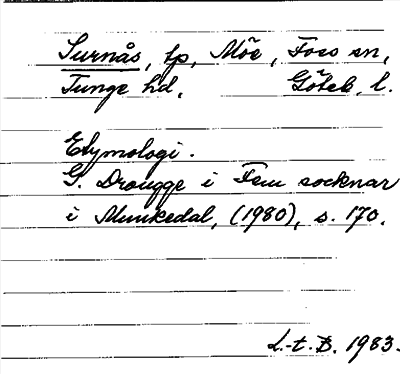 Surnås, tp, Möe, Foss sn,
Tunge hd, Göteb. l.
Etymologi.
G. Drougge i Fem socknar
i Munkedal, (1980), s. 170.
L-t. B. 1983.